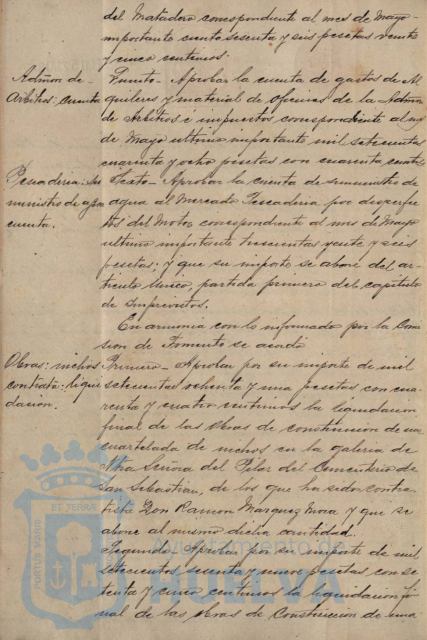 del Matadero correspondiente al mes de Mayo
importante ciento sesenta y seis pesetas veinte
y cinco centimos.
Admon de
Arbitrios: cuenta
Quinto - Aprobar la cuenta de gastos de Al
quileres y material de oficinas de la Admon
de Arbitrios é impuestos correspondiente al mes
de Mayo ultimo importante mil setecientas
cuarenta y ocho pesetas con cuarenta centimos
Pescaderia: Su
ministro de agua
cuenta.
Sexto - Aprobar la cuenta de suministro de
agua al Mercado Pescaderia por desperfec
tos del Motor, correspondiente al mes de Mayo
ultimo importante trescientas veinte y seis
pesetas; y que su importe se abone del ar-
ticulo Unico, partida primera del capitulo
de Imprevistos.
En armonia con lo informado por la Comi
sion de Fomento se acordó
Obras: nichos
contrata: liqui
dación.
Primero - Aprobar por su importe de mil
setecientas ochenta y una pesetas con cua
renta y cuatro centimos la liquidacion
final de las Obras de construccion de una
cuartelada de nichos en la galeria de
Ntra Señora del Pilar del Cementerio de
San Sebastian, de los que ha sido contra-
tista Don Ramon Marquez Mora y que se
abone al mismo dicha cantidad.
Segundo Aprobar por su importe de mil
setecientas sesenta y una pesetas con se
tenta y cinco centimos la liquidacion fi
nal de las Obras de Construccion de una
PORTUS MARIS
ET TERRAE
HUELVA